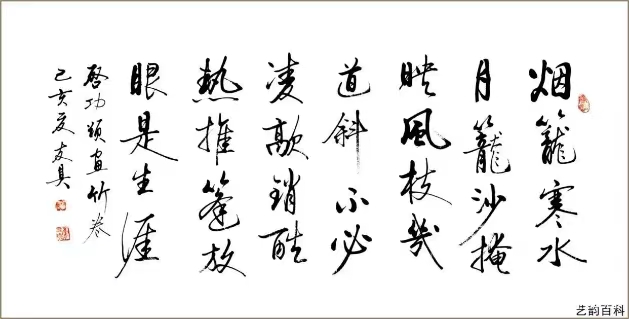 烟籠寒水
月籠沙掩
映風枝幾
道斜不必
凌歊銷酷
熱推篷放
眼是生涯
啓功題画竹卷
己亥夏友具
艺韵百科